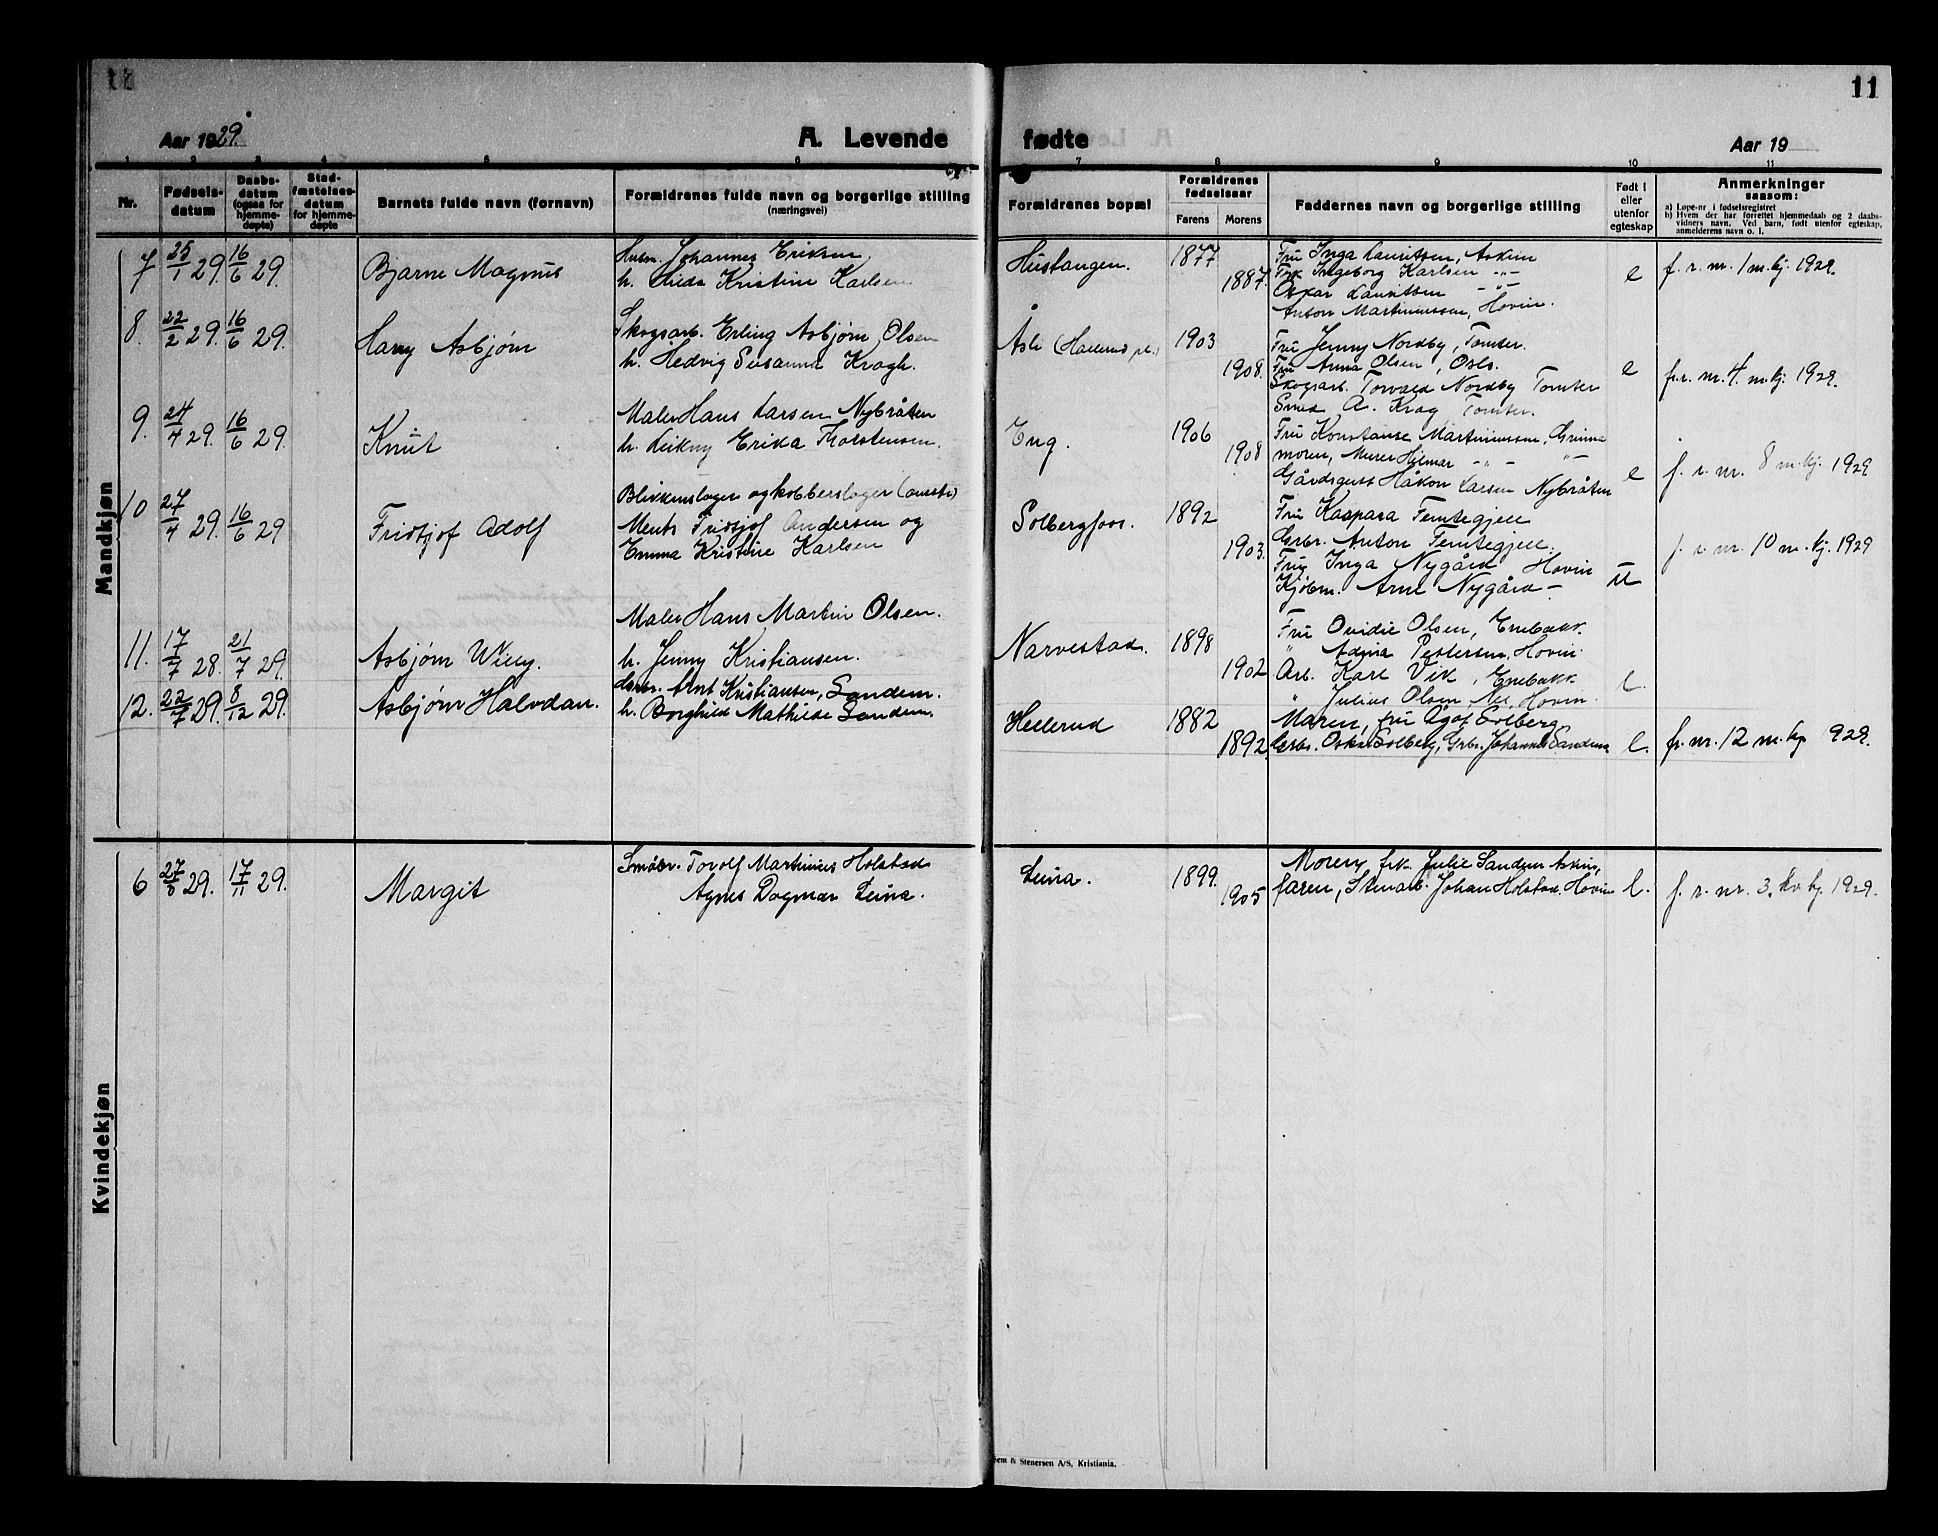 11
Aar 1929.
A. Levende
fødte
Aar 19
11
1 2 3 4 5 6 7 8 9 10 11
Nr.
Fødsels-
datum
Daabs-
datum
(ogsaa for
hjemme-
døpte)
Stad-
fæstelses-
datum
for hjemme-
døpte
Barnets fulde navn (fornavn)
Forældrenes fulde navn og borgerlige stilling
(næringsvei)
Forældrenes bopæl
Forældrenes
fødselsaar
Farens Morens
Faddernes navn og borgerlige stilling
Født i
eller
utenfor
egteskap
Anmerkninger
saasom:
a) Løpe-nr i fødselsregistret
b) Hvem der har forrettet hjemmedaab og 2 daabs-
vidners navn. Ved barn, født utenfor egteskap,
anmelderens navn o. l.
Mandkjøn
7 25/1 29. 16/6 29. Bjarne Magnus
Johannes Eriksen
h. Kristine Karlsen
1877
1887.
Fru Inga Lauritsen, Askim
Frk Ingeborg Karlsen -"-
Oskar Lauritsen -"-
Anton Martiniussen, Hovin.
e f. r. nr. 1 m.kj. 1929.
8. 22/2 29. 16/6 29. Harry Asbjørn
Skogsarb. Erling Asbjørn Olsen
h. Hedvig Susanna Kragh.
1903
1908.
Fru Jenny Nordby, Tomter.
Fru Anna Olsen, Oslo.
Skogsarb. Torvald Nordby Tomter
Smed A. Krag Tomter.
e f.r. nr. 4. m.kj. 1929.
9. 24/4 29. 16/6 29. Knut
Maler Hans Larsen Nybråten
h. Leikny Erika Thorstensen.
Eng. 1906
1908
Fru Konstanse Martiniussen,
moren, Murer Hilmar -"- -"-
Gårdsgutt Håkon Larsen Nybråten
e f. r. nr. 8 m.kj. 1929
10 27/4 29. 16/6 29 Fridtjof Adolf
Blikkenslager og kobberslager
Fridtjof Andersen og
Emma Kristine Karlsen
Solbergfoss. 1892
1903.
Fru Kaspara Femtegjeld
Grbr. Anton Femtegjeld.
Fru Inga Nygård Hovin
Kjøbm. Arne Nygård -
u f. r. nr. 10 m.kj. 1929
11. 17/7 28. 21/7 29. Asbjørn Willy.
Maler Hans Martin Olsen.
h. Jenny Kristiansen.
Narvestad. 1898
1902
Fru Ovidie Olsen, Enebakk.
" Pettersen, Hovin
Arb. Karl Vik, Enebakk
" Julius Olsen Hovin
e.
12. 22/7 29. 8/12 29. Asbjørn Halvdan.
Grbr. Arnt Kristiansen, Sandem.
h. Borghild Mathilde Sandem.
Hellerud 1882
1892.
Moren, fru Solberg
Grbr. Oskar Solberg, Grbr. Johannes Sandem
e. fr. nr. 12 m. kj 929.
Kvindekjøn
6 29. 17/11 29. Margit
Småbr. Torolf Martinius Holstad
Agnes Dagmar Leina.
Leina. 1899.
1905
Moren, frk. Julie Sandem Askim,
faren, Stenarb. Johan Holstad. Hovin
e. f. r. nr. 3. kv. kj. 1929.
& Stenersen A/S, Kristiania.